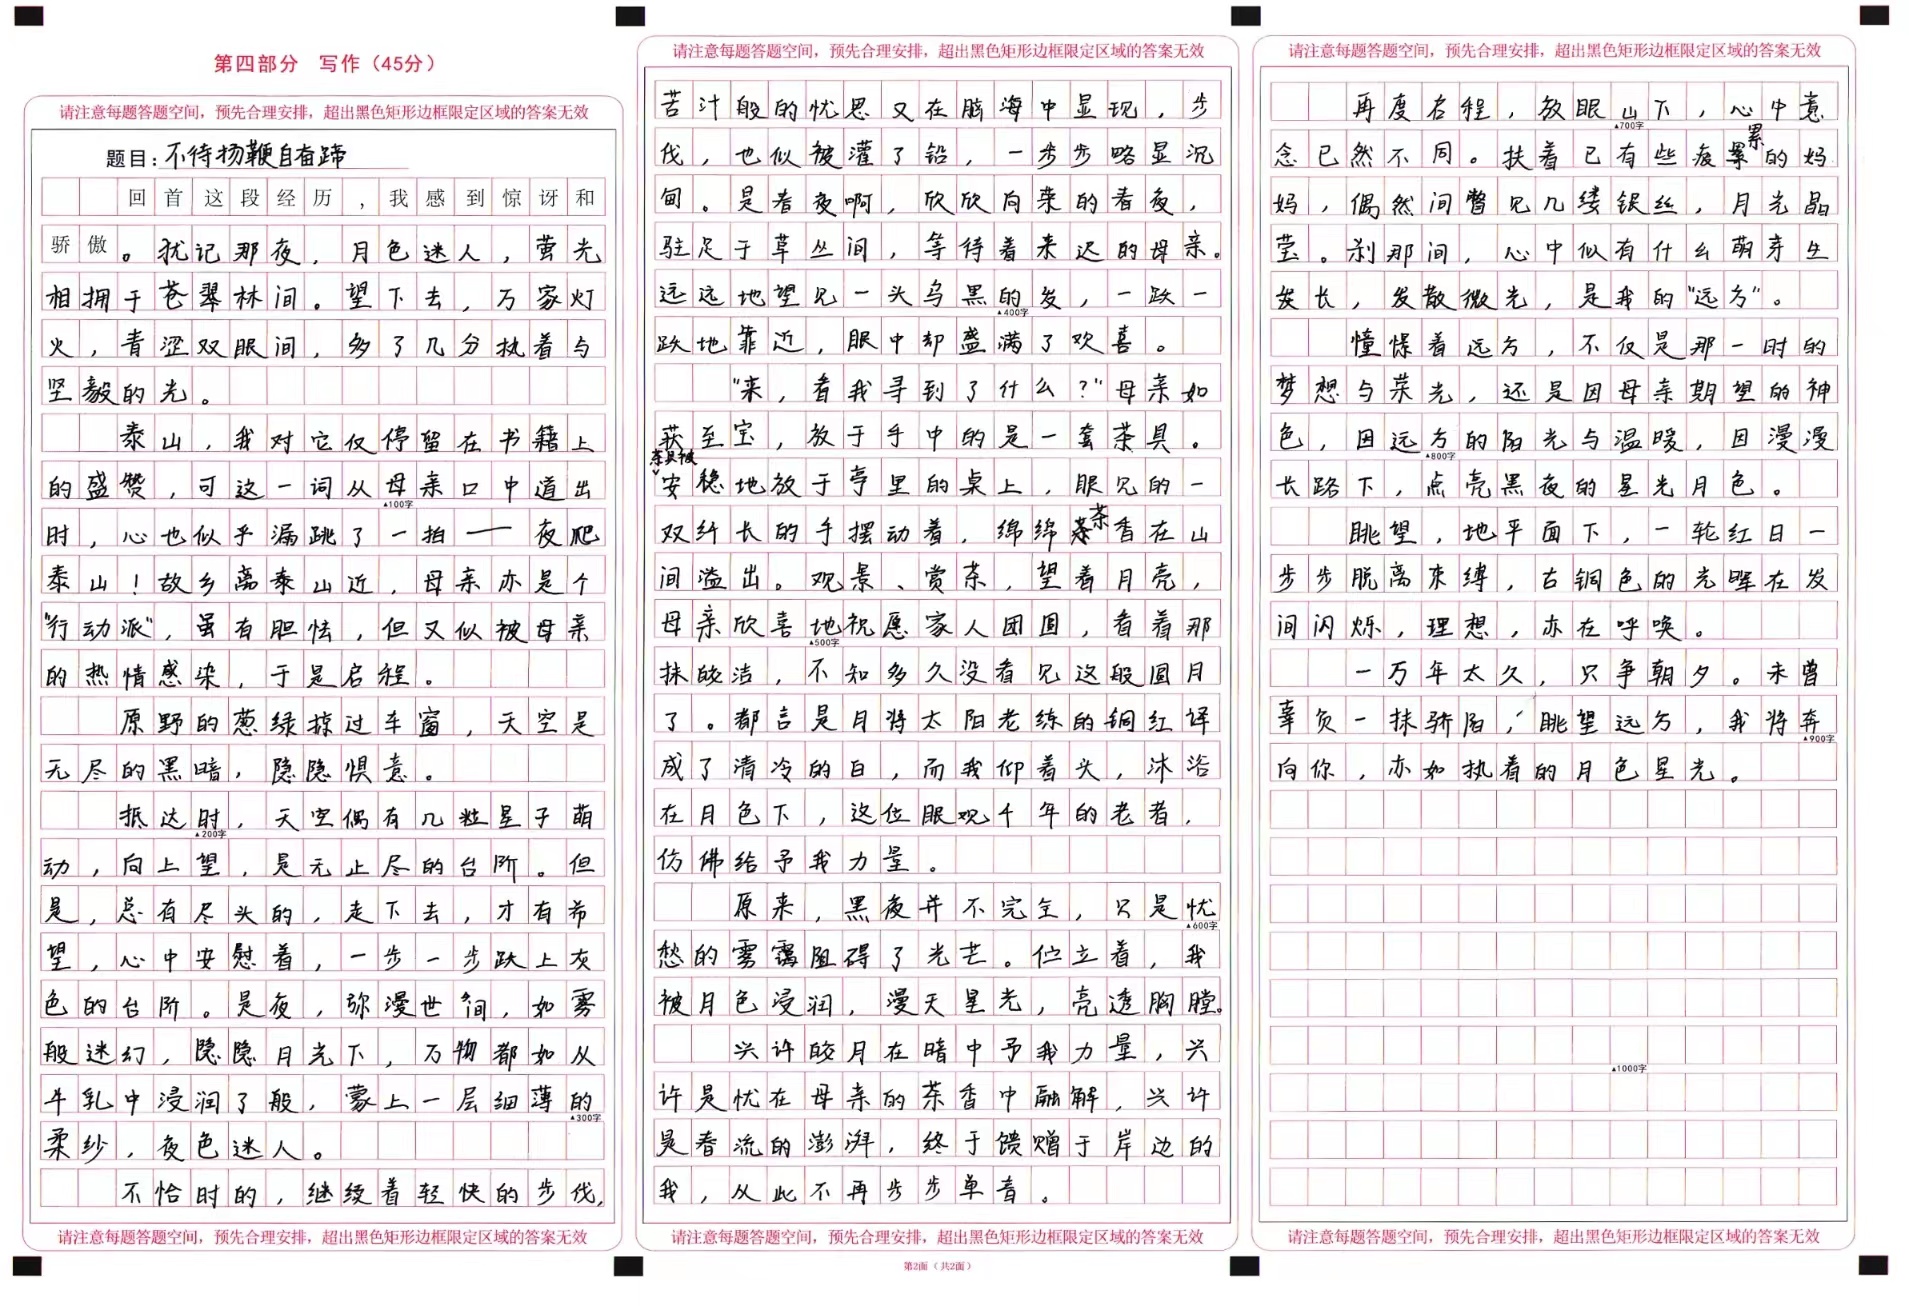 第四部分 写作（45分）
请注意每题答题空间，预先合理安排，超出黑色矩形边框限定区域的答案无效
题目：不待扬鞭自奋蹄
回首这段经历，我感到惊讶和
骄傲。犹记那夜，月色迷人，萤光
相拥于苍翠林间。望下去，万家灯
火，青涩双眼间，多了几分执着与
坚毅的光。
泰山，我对它仅停留在书籍上
的盛赞，可这一词从母亲口中道出
▲100字
时，心也似乎漏跳了一拍——夜爬
泰山！故乡离泰山近，母亲亦是个
“行动派”，虽有胆怯，但又似被母亲
的热情感染，于是启程。
原野的葱绿掠过车窗，天空是
无尽的黑暗，隐隐惧意。
抵达时，天空偶有几粒星子萌
▲200字
动，向上望，是无止尽的台阶。但
是，总有尽头的，走下去，才有希
望，心中安慰着，一步一步跃上灰
色的台阶。是夜，弥漫世间，如雾
般迷幻，隐隐月光下，万物都如从
牛乳中浸润了般，蒙上一层细薄的
▲300字
柔纱，夜色迷人。
不恰时的，继续着轻快的步伐，
请注意每题答题空间，预先合理安排，超出黑色矩形边框限定区域的答案无效
请注意每题答题空间，预先合理安排，超出黑色矩形边框限定区域的答案无效
苦汁般的忧思又在脑海中显现，步
伐，也似被灌了铅，一步步略显沉
甸。是春夜啊，欣欣向荣的春夜，
驻足于草丛间，等待着来迟的母亲。
远远地望见一头乌黑的发，一跃一
▲400字
跃地靠近，眼中却盛满了欢喜。
“来，看我寻到了什么？”母亲如
获至宝，放于手中的是一套茶具。
茶具被
安稳地放于亭里的桌上，眼见的一
双纤长的手摆动着，绵绵茶香在山
间溢出。观景、赏茶，望着月亮，
母亲欣喜地祝愿家人团圆，看着那
▲500字
抹皎洁，不知多久没看见这般圆月
了。都言是月将太阳老练的铜红译
成了清冷的白，而我仰着头，沐浴
在月色下，这位眼观千年的老者，
仿佛给予我力量。
原来，黑夜并不完全，只是忧
▲600字
愁的雾霭阻碍了光芒。伫立着，我
被月色浸润，漫天星光，亮透胸膛。
兴许皎月在暗中予我力量，兴
许是忧在母亲的茶香中融解，兴许
是春流的澎湃，终于馈赠于岸边的
我，从此不再步步单音。
请注意每题答题空间，预先合理安排，超出黑色矩形边框限定区域的答案无效
第2面（共2面）
请注意每题答题空间，预先合理安排，超出黑色矩形边框限定区域的答案无效
再度启程，放眼山下，心中意
▲700字
念已然不同。扶着已有些疲累的妈
妈，偶然间瞥见几缕银丝，月光晶
莹。刹那间，心中似有什么萌芽生
发长，发散微光，是我的“远方”。
憧憬着远方，不仅是那一时的
梦想与荣光，还是因母亲期望的神
色，因远方的阳光与温暖，因漫漫
▲800字
长路下，点亮黑夜的星光月色。
眺望，地平面下，一轮红日一
步步脱离束缚，古铜色的光晖在发
间闪烁，理想，亦在呼唤。
一万年太久，只争朝夕。未曾
辜负一抹骄阳，眺望远方，我将奔
▲900字
向你，亦如执着的月色星光。
▲1000字
请注意每题答题空间，预先合理安排，超出黑色矩形边框限定区域的答案无效